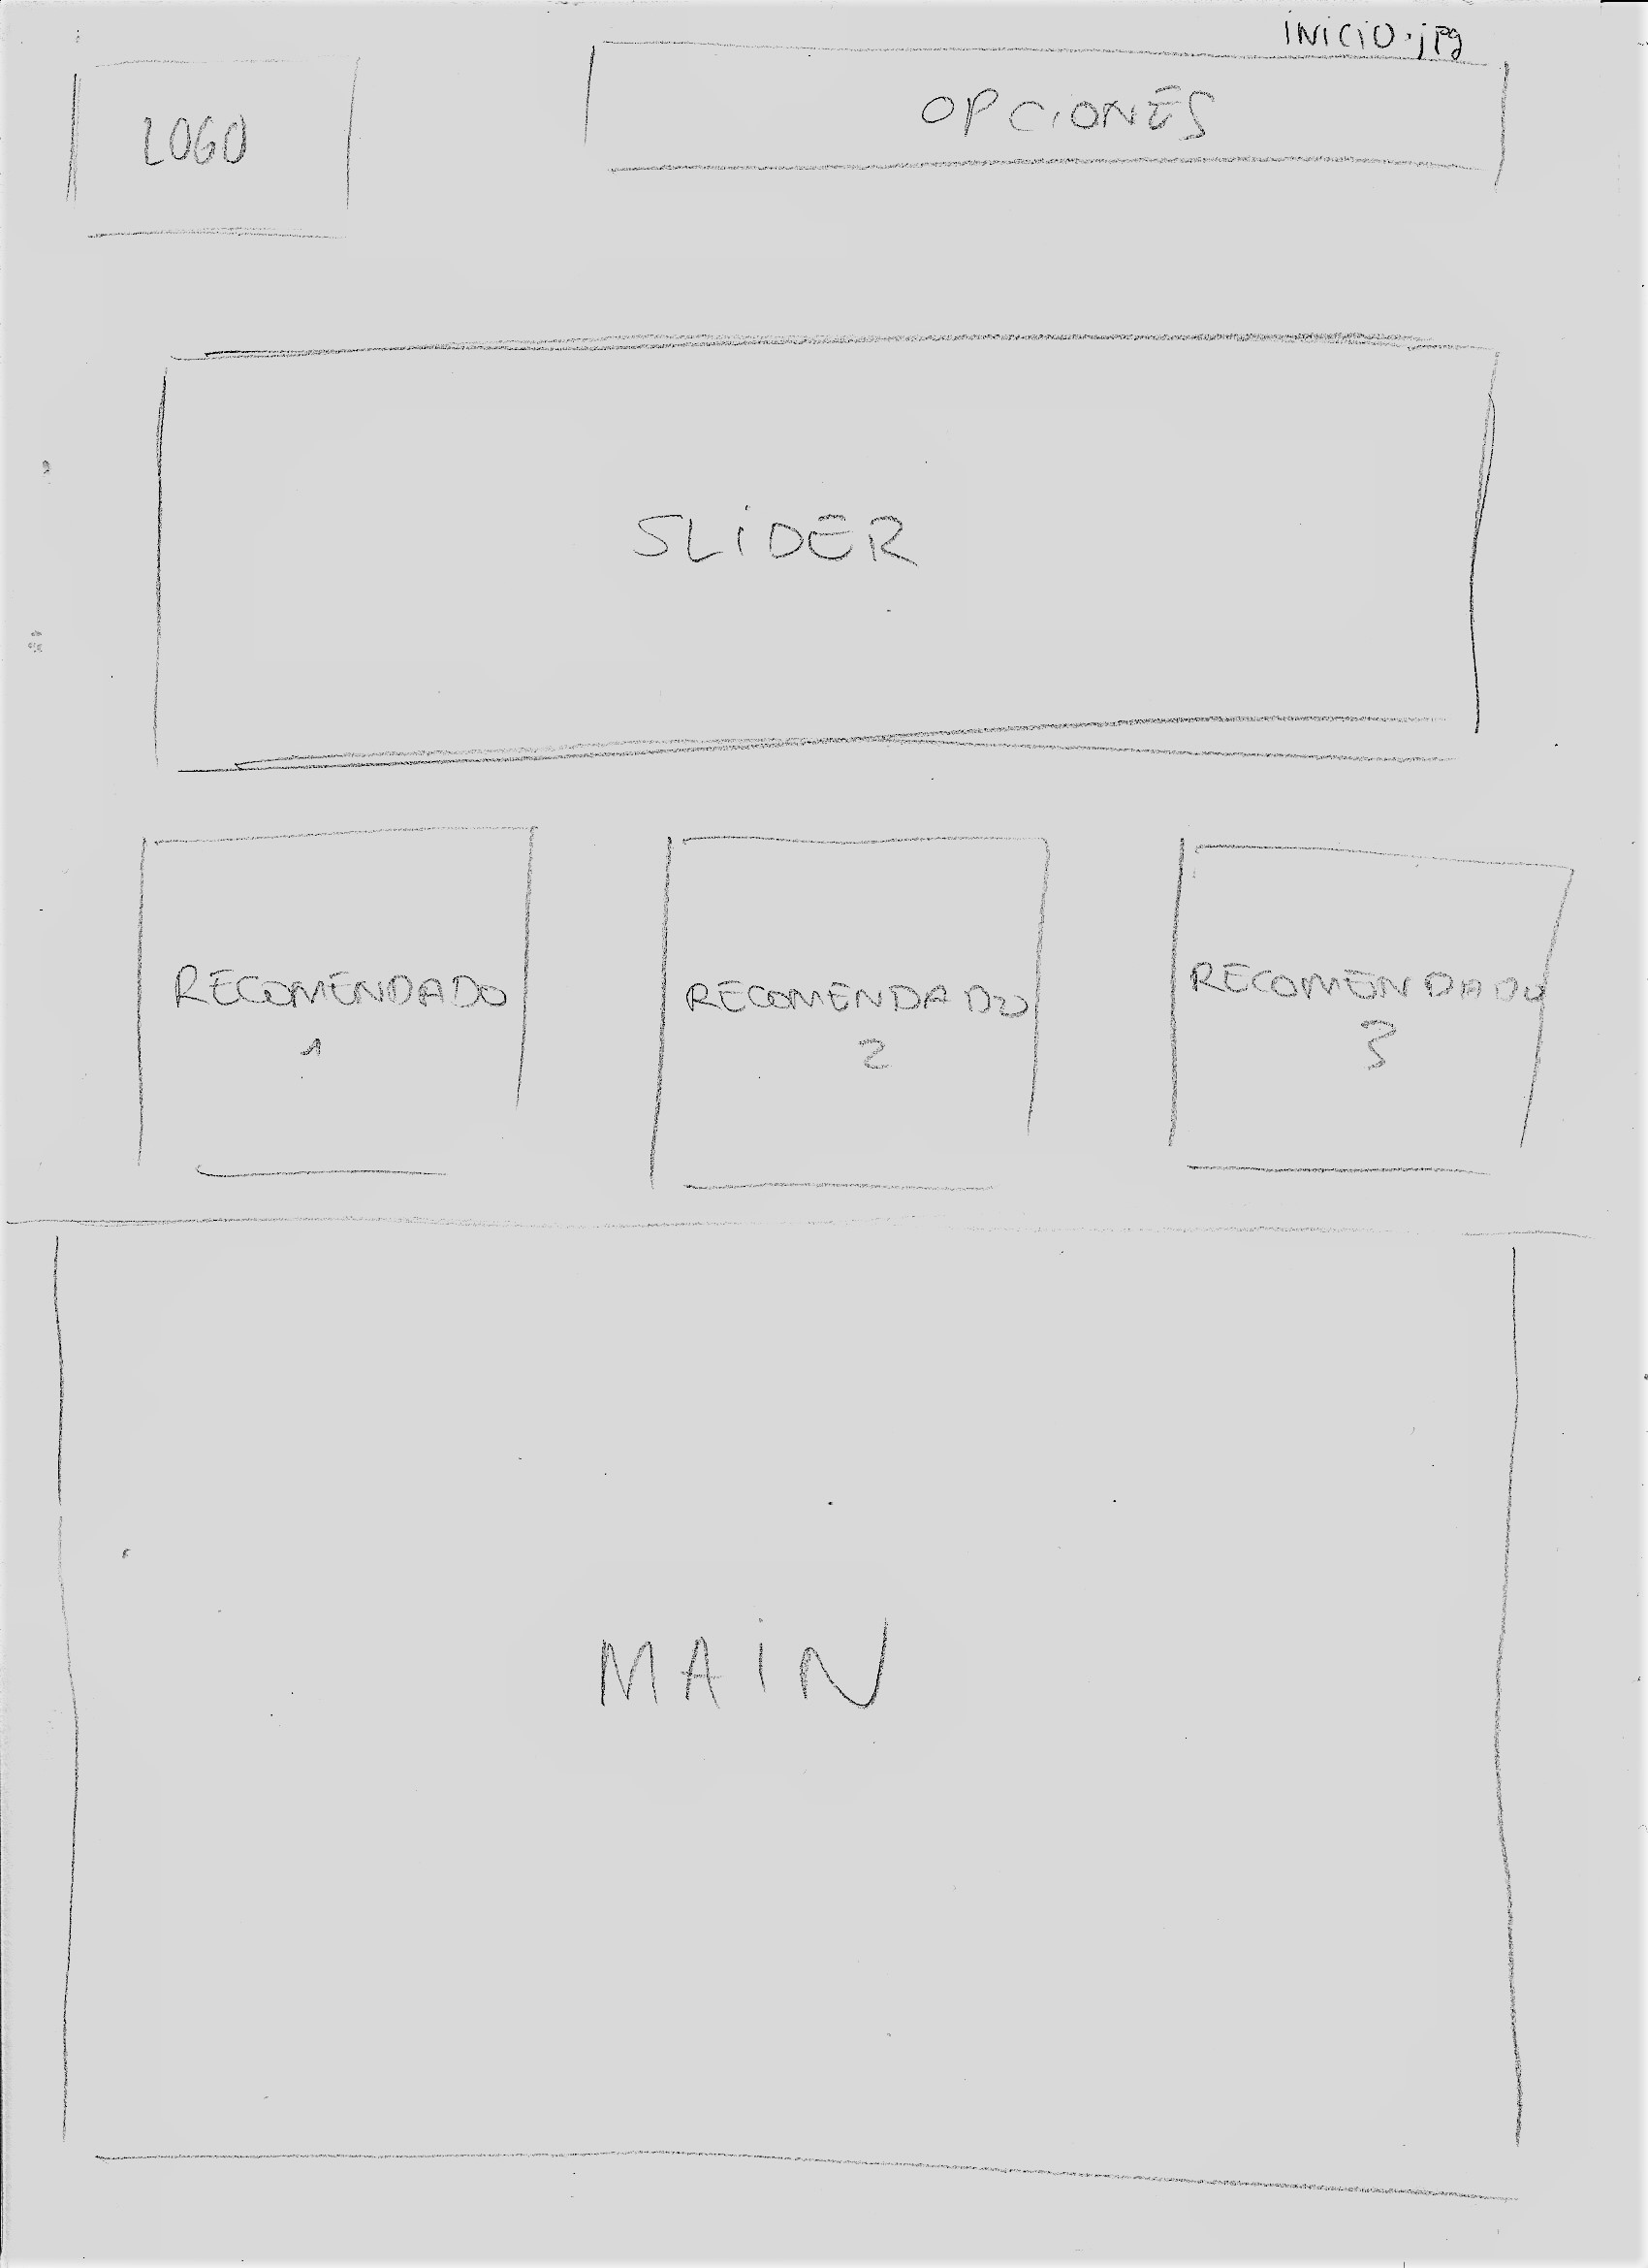 iNiCiO.jpg
LOGO
OPCiONES
SLiDER
RECOMENDADO
1
RECOMENDADO
2
RECOMENDADO
3
MAiN